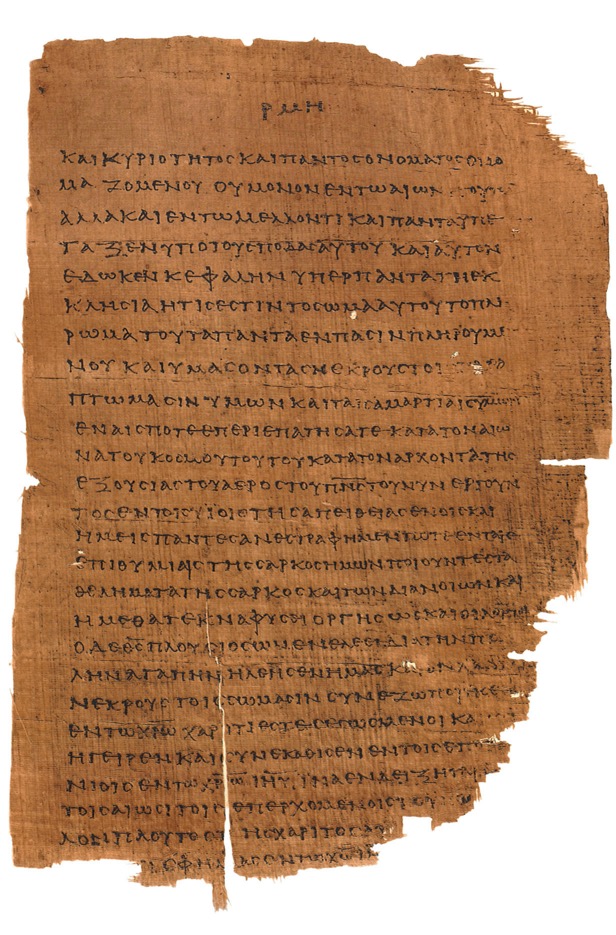 ΡΜΗ
ΚΑΙΚΥΡΙΟΤΗΤΟCΚΑΙΠΑΝΤΟCΟΝΟΜΑΤΟCΟΝΟ
ΜΑΖΟΜΕΝΟΥ ΟΥΜΟΝΟΝΕΝΤΩΑΙΩΝ
ΑΛΛΑΚΑΙΕΝΤΩΜΕΛΛΟΝΤΙ ΚΑΙΠΑΝΤΑΥΠΕ
ΤΑΞΕΝΥΠΟΤΟΥCΠΟΔΑCΑΥΤΟΥ ΚΑΙΑΥΤΟΝ
ΕΔΩΚΕΝΚΕΦΑΛΗΝΥΠΕΡΠΑΝΤΑΤΗΕΚ
ΚΛΗCΙΑΗΤΙCΕCΤΙΝΤΟCΩΜΑΑΥΤΟΥΤΟΠΛΗ
ΡΩΜΑΤΟΥΤΑΠΑΝΤΑΕΝΠΑCΙΝΠΛΗΡΟΥΜΕ
ΝΟΥ ΚΑΙΥΜΑCΟΝΤΑCΝΕΚΡΟΥCΤΟΙ
ΠΤΩΜΑCΙΝΥΜΩΝΚΑΙΤΑΙCΑΜΑΡΤΙΑΙCΥΜΩΝ
ΕΝΑΙCΠΟΤΕΠΕΡΙΕΠΑΤΗCΑΤΕ ΚΑΤΑΤΟΝΑΙΩ
ΝΑΤΟΥΚΟCΜΟΥΤΟΥΤΟΥΚΑΤΑΤΟΝΑΡΧΟΝΤΑΤΗC
ΕΞΟΥCΙΑCΤΟΥΑΕΡΟCΤΟΥΠΝCΤΟΥΝΥΝ ΕΡΓΟΥΝ
ΤΟCΕΝΤΟΙCΥΙΟΙCΤΗCΑΠΕΙΘΕΙΑCΕΝΟΙCΚΑΙ
ΗΜΕΙCΠΑΝΤΕCΑΝΕCΤΡΑΦΗΜΕΝΠΟΤΕΕΝΤΑΙC
ΕΠΙΘΥΜΙΑΙCΤΗCCΑΡΚΟCΗΜΩΝΠΟΙΟΥΝΤΕCΤΑ
ΘΕΛΗΜΑΤΑΤΗCCΑΡΚΟCΚΑΙΤΩΝΔΙΑΝΟΙΩΝΚΑΙ
ΗΜΕΘΑΤΕΚΝΑΦΥCΕΙΟΡΓΗCΩCΚΑΙΟΙΛΟΙΠΟΙ
ΟΔΕΘCΠΛΟΥCΙΟCΩΝΕΝΕΛΕΕΙΔΙΑΤΗΝΠΟ
ΛΗΝΑΓΑΠΗΝΗΛΕΗCΕΝΗΜΑCΚΑΙ
ΝΕΚΡΟΥCΤΟΙCCΩΜΑCΙΝCΥΝΕΖΩΠΟΙΗCΕ
ΕΝΤΩΧΡΩΧΑΡΙΤΙΕCΤΕCΕCΩCΜΕΝΟΙΚΑ
ΗΓΕΙΡΕΝΚΑΙCΥΝΕΚΑΘΙCΕΝΕΝΤΟΙCΕΠΟΥ
ΝΙΟΙCΕΝΤΩΧΡΩΙΗΥΙΝΑΕΝΔΕΙΞΗΤΑΙ
ΤΟΙCΑΙΩCΙΤΟΙCΕΠΕΡΧΟΜΕΝΟΙC
ΛΟΝΠΛΟΥΤΟC ΗCΧΑΡΙΤΟCΑΥ
ΕΦΗΜΑCΕΝΤΩΧΡΩΙΗΥ